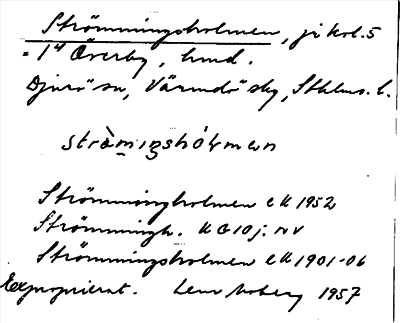 Strömmingsholmen, jfr kol. 5
= 1⁴ Överby, hmd.
Djurö sn, Värmdö skg, Sthlms. l.
stràmıŋshólmen
Strömmingholmen EK 1952
Strömmingh. KG 10j. NV
Strömmingsholmen EK 1901-06
Exproprierat. Lena Moberg 1957